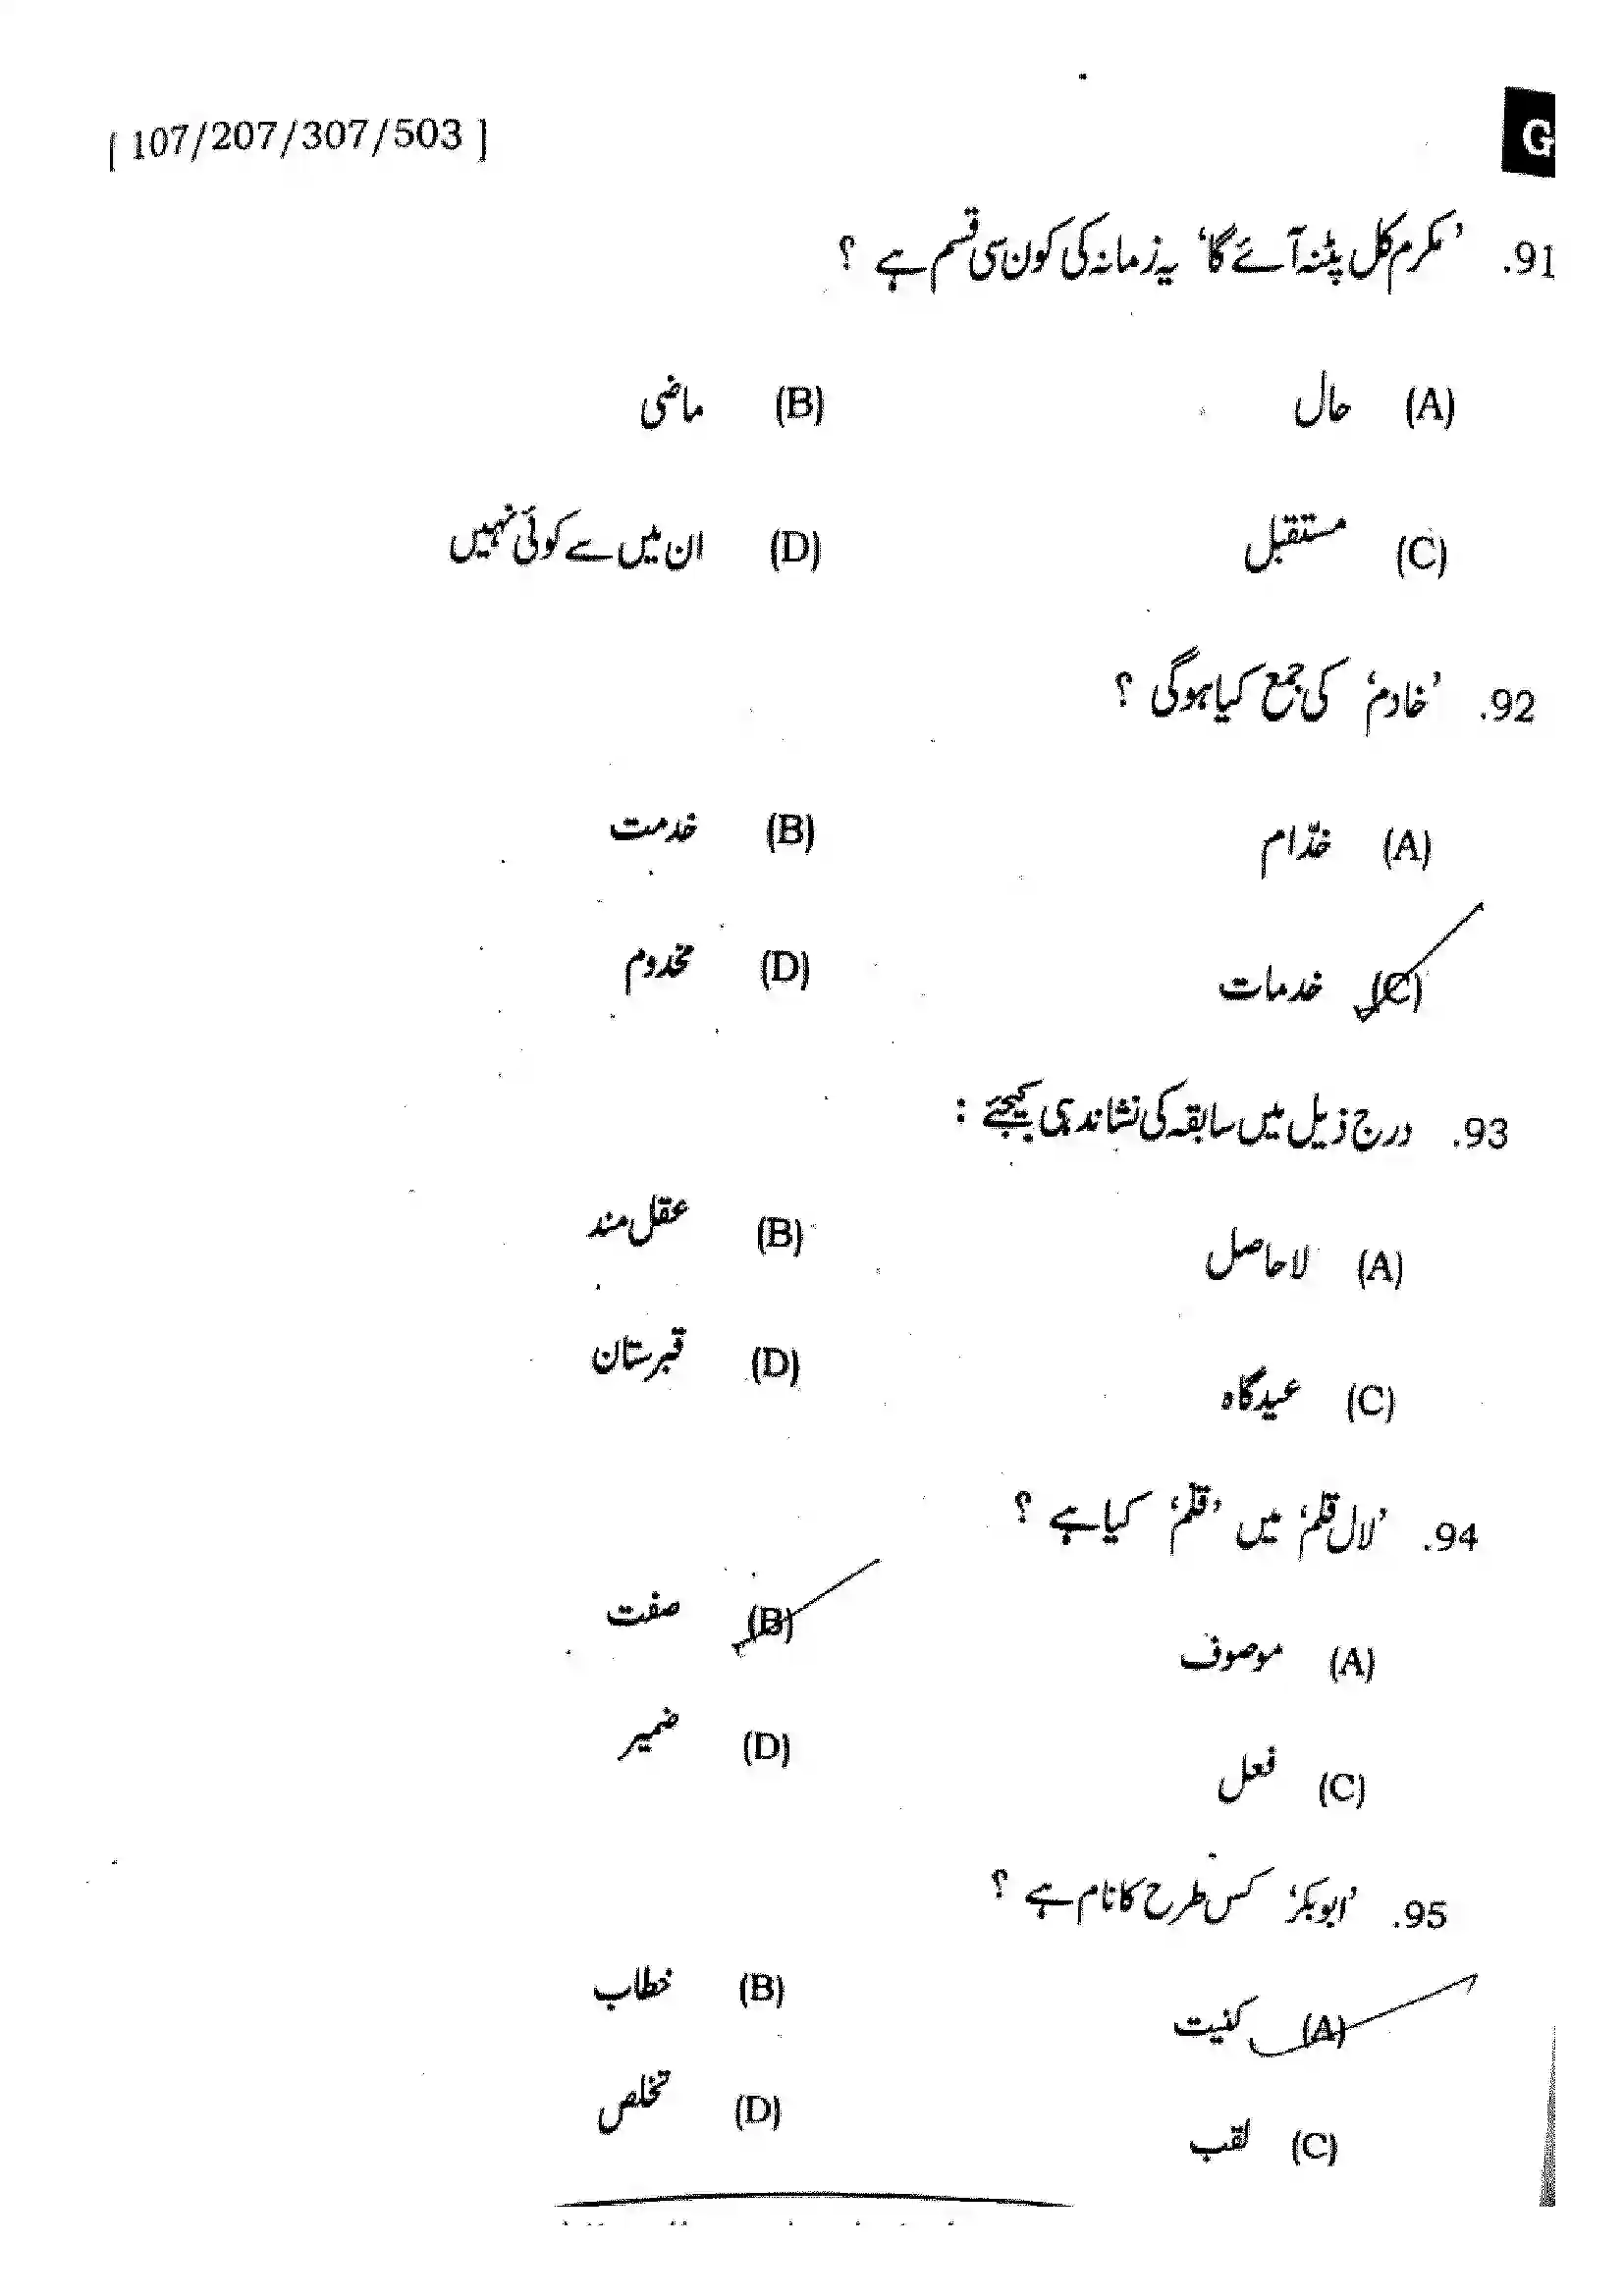 [ 107/207/307/503 ]
G
91. ’مکرم کل پٹنہ آئے گا‘ یہ زمانہ کی کون سی قسم ہے ؟
(A) حال (B) ماضی
(C) مستقبل (D) ان میں سے کوئی نہیں
92. ’خادم‘ کی جمع کیا ہوگی ؟
(A) خدّام (B) خدمت
(C) خدمات (D) مخدوم
93. درج ذیل میں سابقہ کی نشاندہی کیجئے :
(A) لاحاصل (B) عقل مند
(C) عیدگاہ (D) قبرستان
94. ’لال قلم‘ میں ’قلم‘ کیا ہے ؟
(A) موصوف (B) صفت
(C) فعل (D) ضمیر
95. ’ابوبکر‘ کس طرح کا نام ہے ؟
(A) کنیت (B) خطاب
(C) لقب (D) تخلص